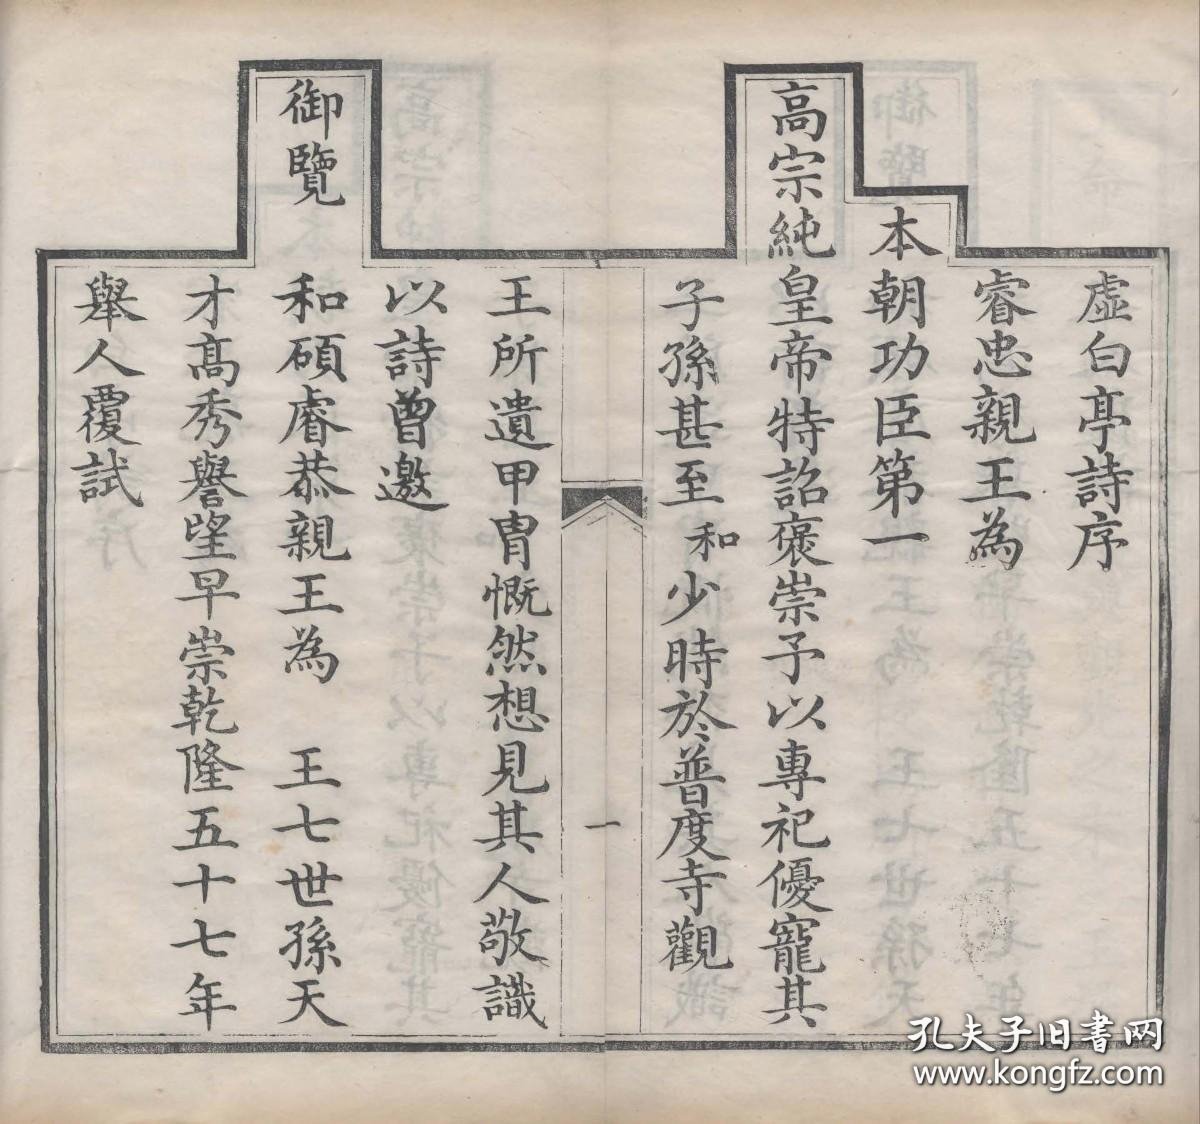 虛白亭詩序
睿忠親王為
本朝功臣第一
高宗純皇帝特詔褒崇予以專祀優寵其
子孫甚至和少時於普度寺觀
一
王所遺甲冑慨然想見其人敬識
以詩曾邀
御覽
和碩睿恭親王為　王七世孫天
才高秀譽望早崇乾隆五十七年
舉人覆試
孔夫子旧书网
www.kongfz.com